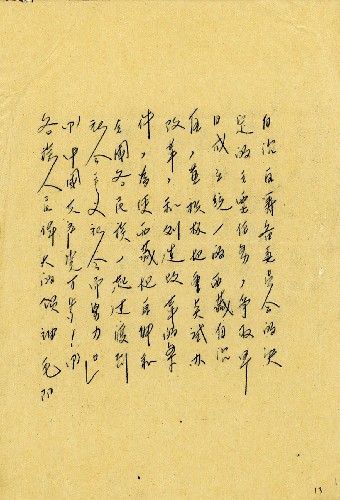 自治区筹备委员会的决
的主要任务,争取早
日成立统一的西藏自治
区,並积极地重点试办
改革,和创造改革的条
件,为使西藏地区和
全国各民族一起过渡到
社会主义社会而努力。
中国共产党万岁!
各族人民伟大的领袖毛
13